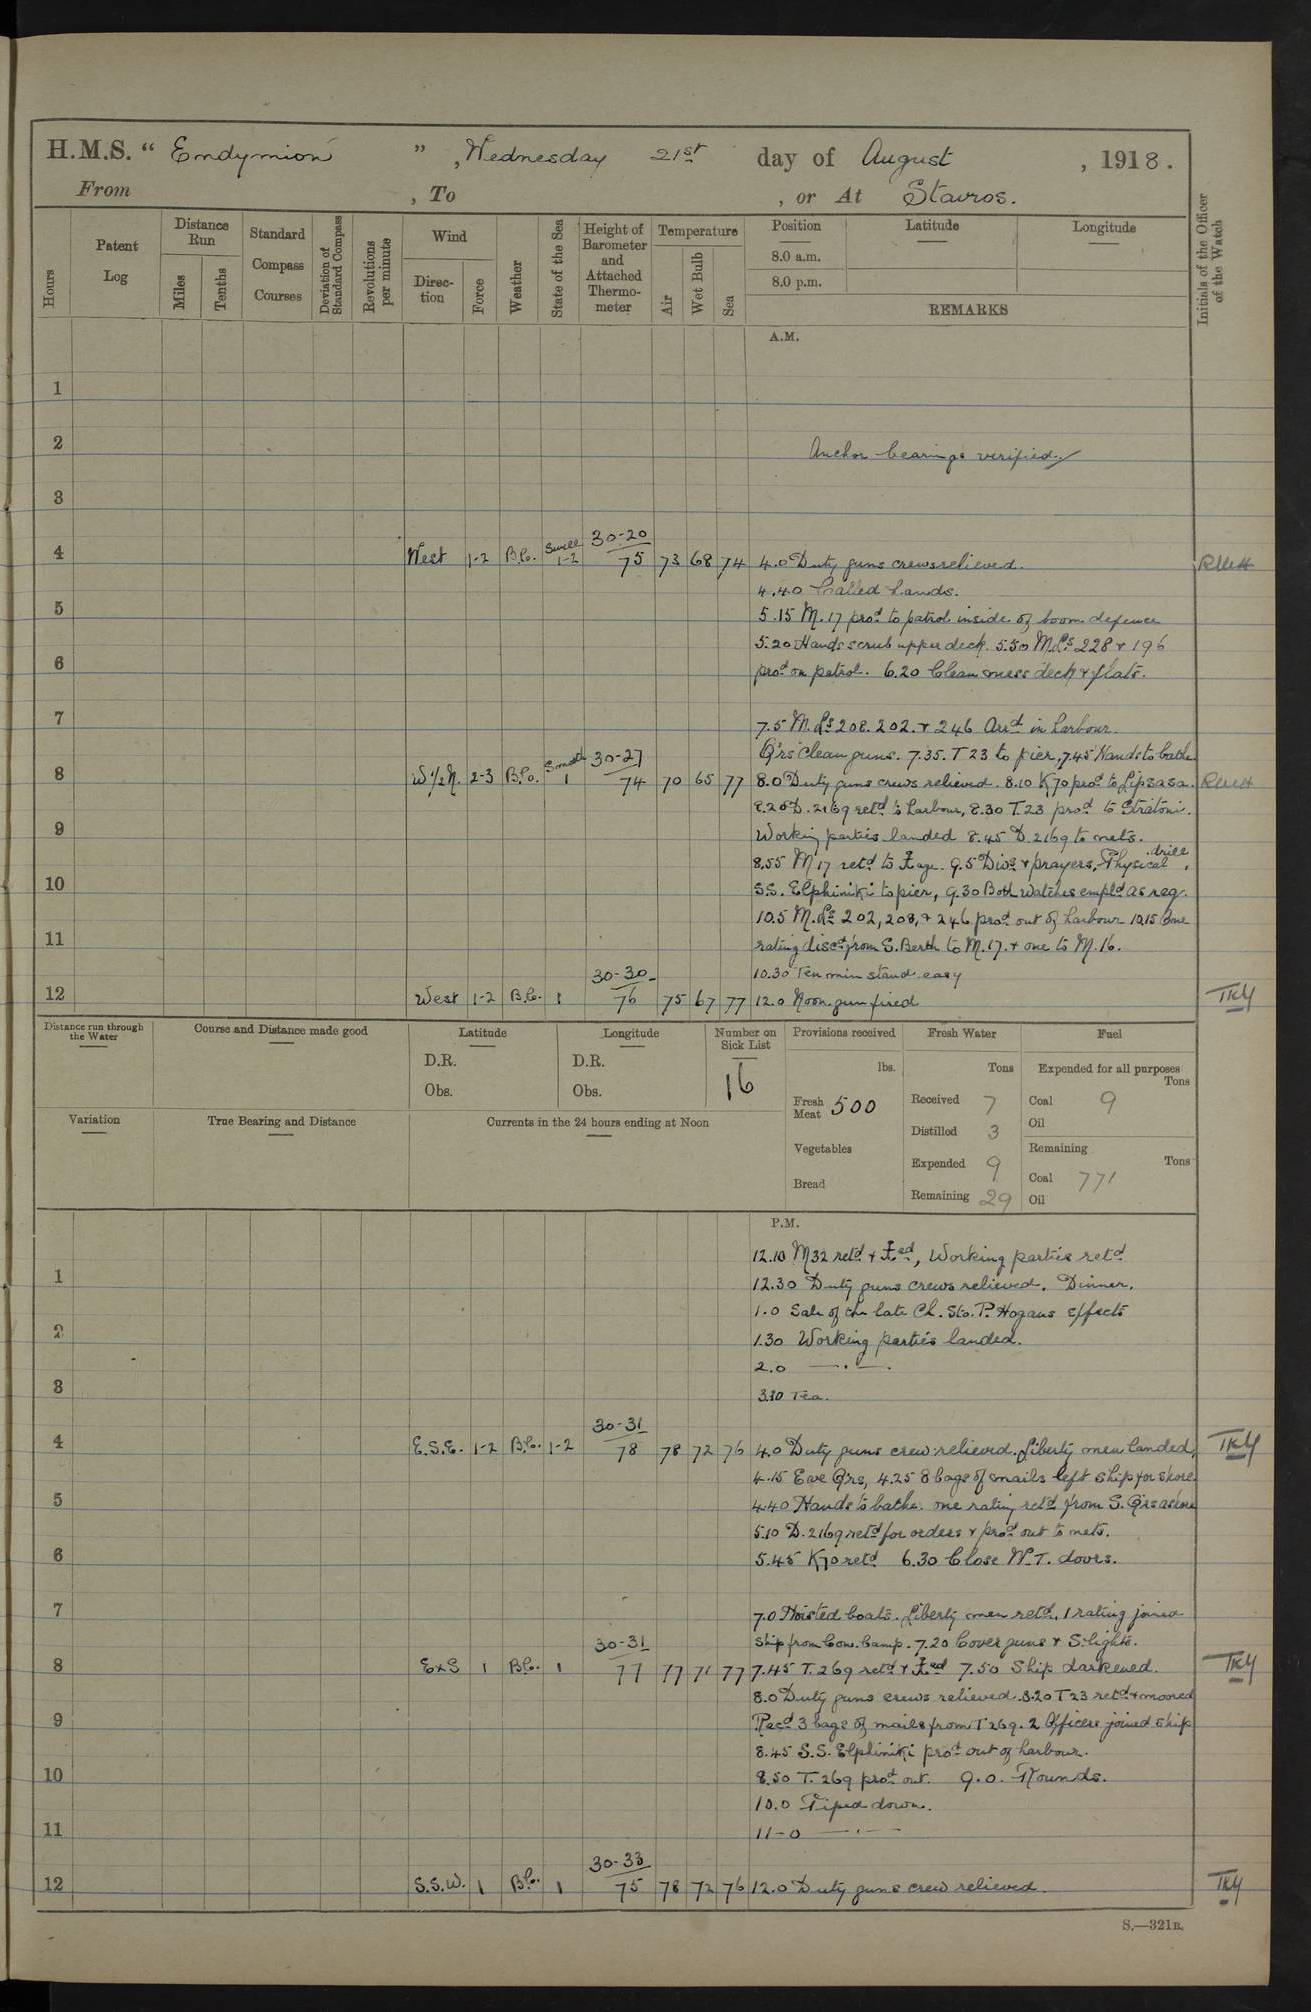 H.M.S. “ Endymion ” , Wednesday 21st day of August , 1918.
From , To , or At Stavros.
Hours
Patent Log
Distance Run
Miles
Tenths
Standard Compass Courses
Deviation of Standard Compass
Revolutions per minute
Wind
Direction
Force
Weather
State of the Sea
Height of Barometer and Attached Thermometer
Temperature
Air
Wet Bulb
Sea
Position
8.0 a.m.
8.0 p.m.
Latitude
Longitude
REMARKS
Initials of the Officer of the Watch
A.M.
1
2 Anchor bearings verified.
3
4 West 1-2 B.C. Swell 1-2 30-20 75 73 68 74 4.0 Duty guns crews relieved.
4.40 Called hands.
5 5.15 M.17 procd to patrol inside of boom defence
5.20 Hands scrub upper deck. 5.50 M.Ls 228 + 196
6 procd on patrol. 6.20 Clean mess deck & flats.
7 7.5 M.Ls 208. 202. + 246 Arrd in harbour.
Qrs Clean guns. 7.35. T 23 to pier, 7.45 Hands to bathe
8 W½N. 2-3 B.C. Smooth 1 30-27 74 70 65 77 8.0 Duty guns crews relieved. 8.10 K70 procd to Lipsasa.
8.20 D.2169 retd to harbour, 8.30 T.23 procd to Stratoni.
9 Working parties landed 8.45 D.2169 to nets.
8.55 M 17 retd to ⚓age. 9.5 Divs & prayers, Physical drill,
10 S.S. Elphiniki to pier, 9.30 Both watches empld as req.
10.5 M.Ls 202, 208, + 246 procd out of harbour 10.15 One
11 rating discd from S. Berth to M.17. + one to M.16.
10.30 Ten min stand easy
12 West 1-2 B.C. 1 30-30 76 75 67 77 12.0 Noon gun fired
Distance run through the Water
Course and Distance made good
Latitude
D.R.
Obs.
Longitude
D.R.
Obs.
Number on Sick List
16
Provisions received
lbs.
Fresh Meat 500
Vegetables
Bread
Fresh Water
Tons
Received 7
Distilled 3
Expended 9
Remaining 29
Fuel
Expended for all purposes
Tons
Coal 9
Oil
Remaining
Tons
Coal 771
Oil
Variation
True Bearing and Distance
Currents in the 24 hours ending at Noon
P.M.
12.10 M32 retd + ⚓ed, Working parties retd
1 12.30 Duty guns crews relieved. Dinner.
1.0 Sale of the late Ch. Sto. P. Hogans effects
2 1.30 Working parties landed.
2.0 —·—.
3 3.30 Tea.
4 E.S.E. 1-2 B.C. 1-2 30-31 78 78 72 76 4.0 Duty guns crew relieved. Liberty men landed,
4.15 Eve Qrs, 4.25 8 bags of mails left ship for shore.
5 4.40 Hands to bathe. one rating retd from S. Qrs ashore
5.10 D.2169 retd for orders & procd out to nets.
6 5.45 K70 retd 6.30 Close W.T. doors.
7 7.0 Hoisted boats. Liberty men retd, 1 rating joined
ship from Con. Camp. 7.20 Cover guns & S. lights.
8 ExS 1 B.C. 1 30-31 77 77 71 77 7.45 T. 269 retd + ⚓ed 7.50 Ship darkened.
8.0 Duty guns crews relieved. 8.20 T 23 retd & moored
9 Recd 3 bags of mails from T 269. 2 Officers joined ship
8.45 S.S. Elphiniki procd out of harbour.
10 8.50 T. 269 procd out. 9.0. Rounds.
10.0 Piped down.
11 11-0 —·—
12 S.S.W. 1 B.C. 1 30-33 75 78 72 76 12.0 Duty guns crew relieved.
S.—321B.